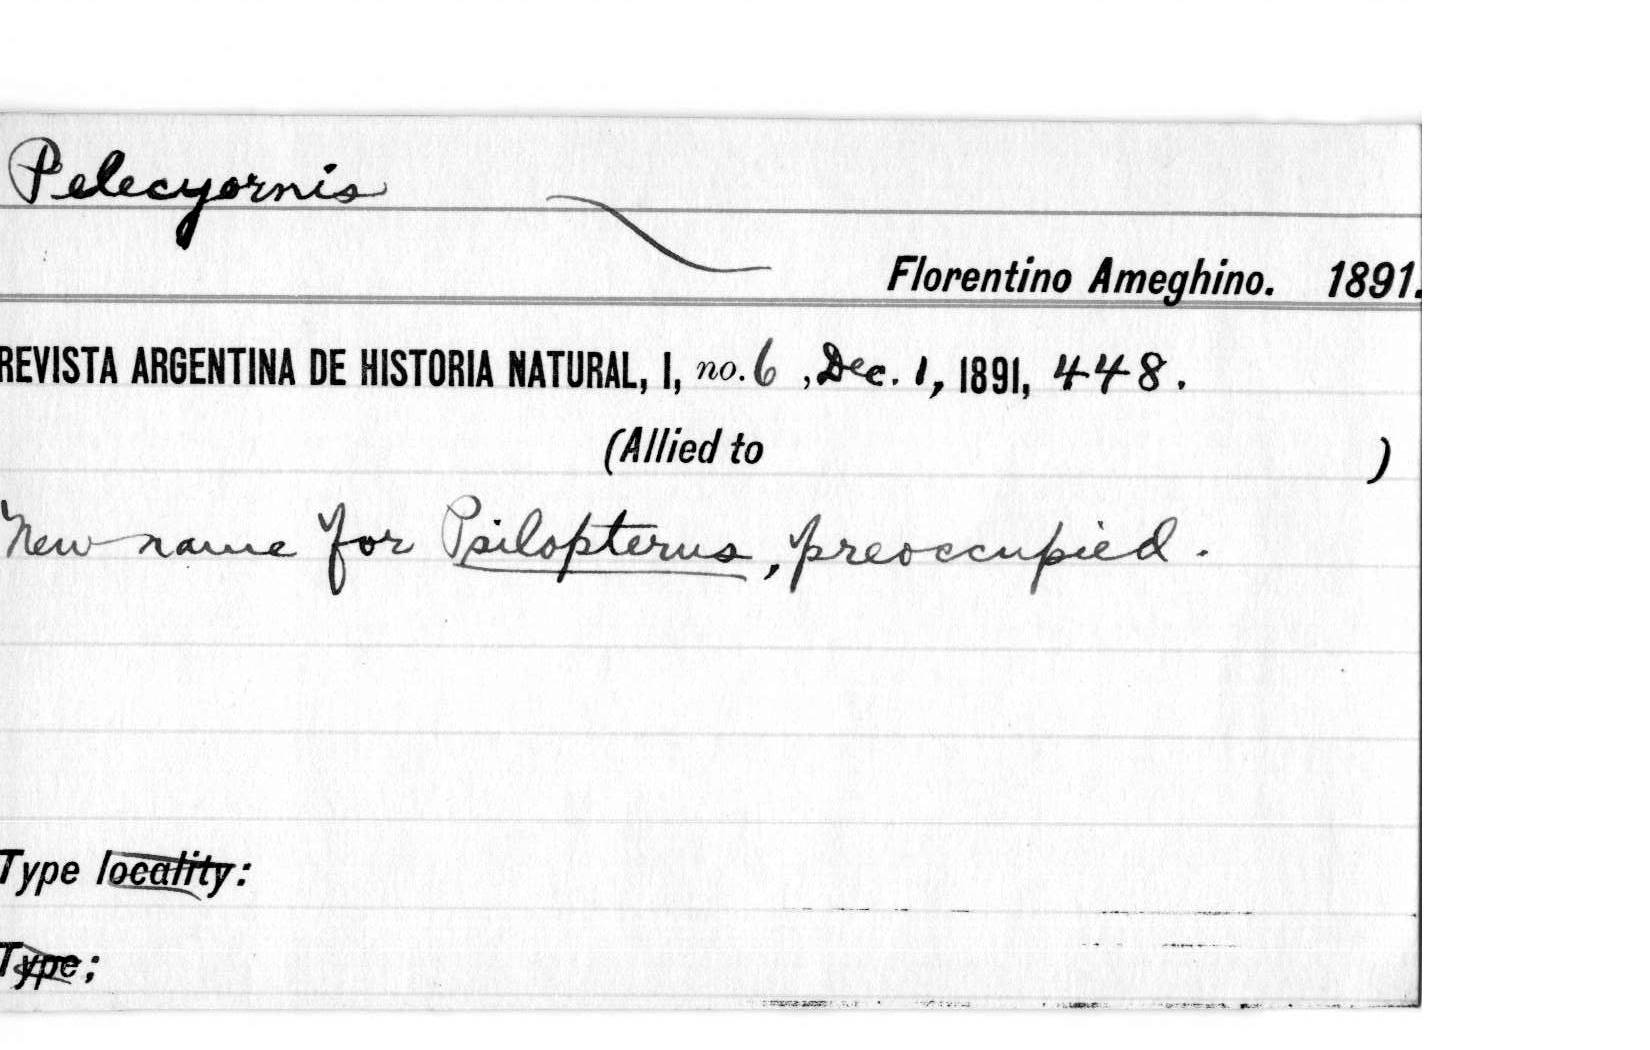 Pelecyornis
Florentino Ameghino. 1891.
REVISTA ARGENTINA DE HISTORIA NATURAL, I, no. 6, Dec. 1, 1891, 448.
(Allied to )
New name for Psilopterus, preoccupied.
Type locality:
Type;